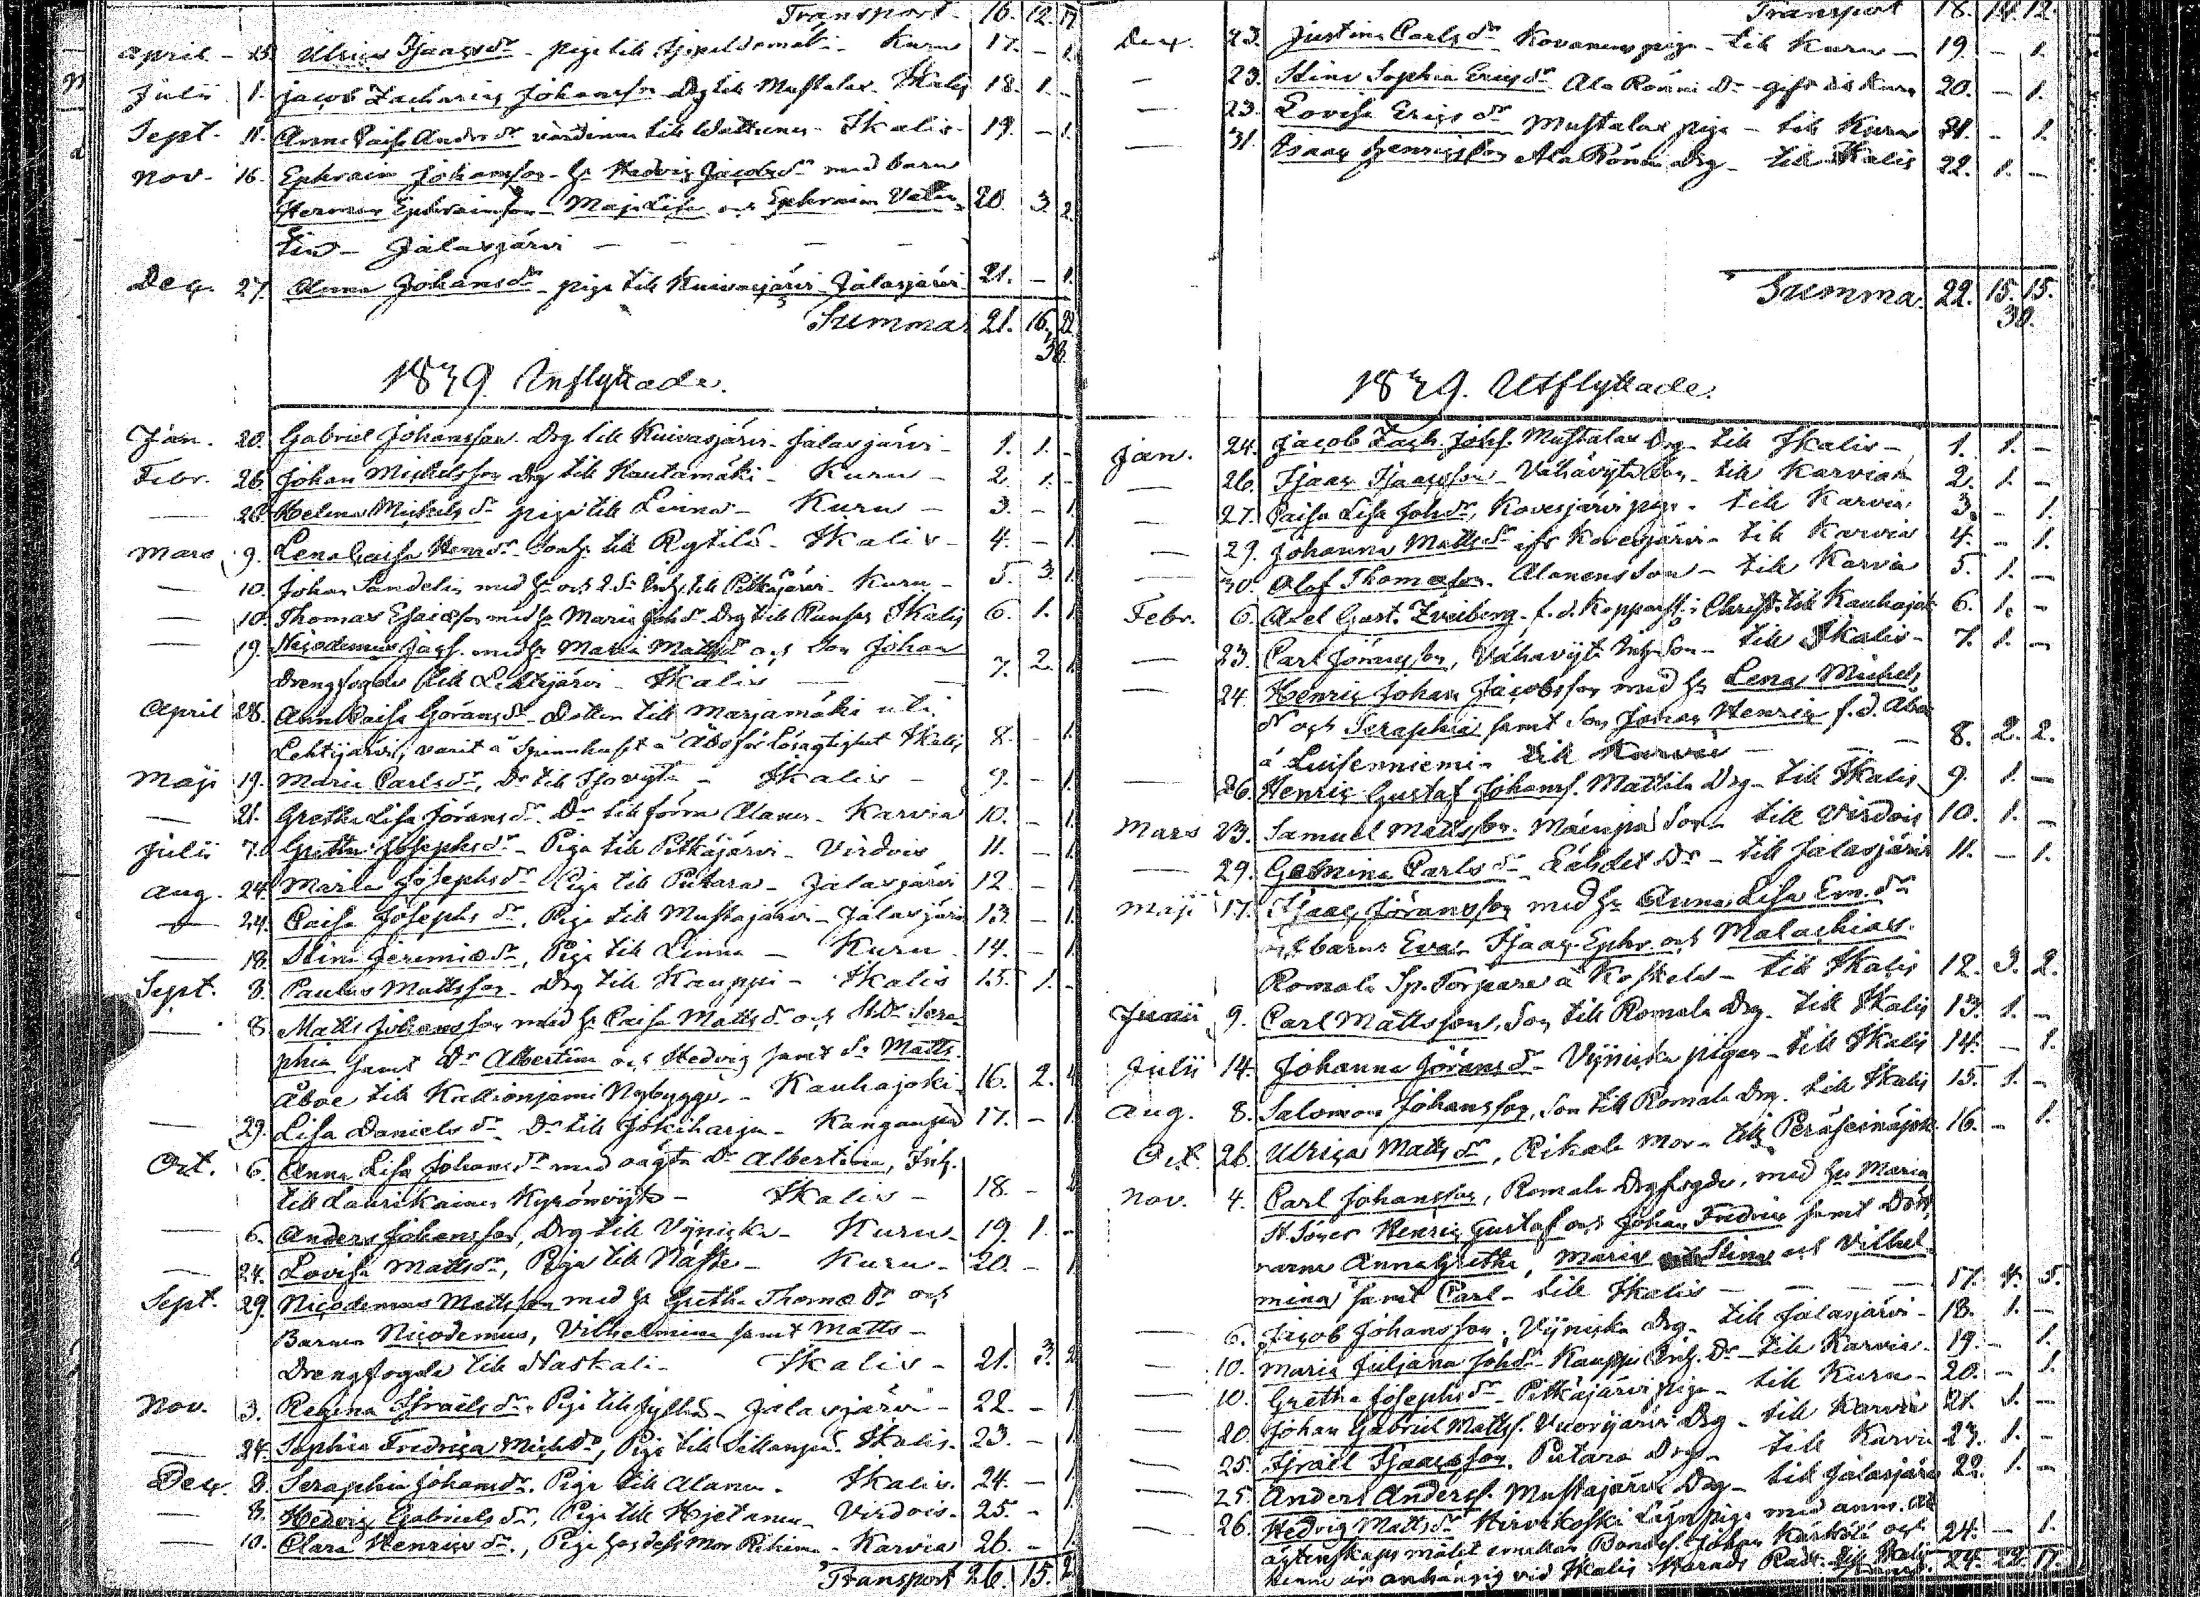 Transport 16. 12. 17
April - 25. Ulrica Isaacsdr - piga till - Kuru 17. - 1.
Julii 1. Jacob Zacharias Johansson Drg till Mustalax. Ikalis 18. 1. -
Sept. 11. Anna Caisa Andersdr värdinna till - Ikalis - 19. - 1.
Nov. 16. Ephraim Johansson - h. Hedvig Jacobsdr med barn
Herman Ephraimsson - Maja Lisa och Ephraim Valen= 20. 3. 2.
tin - Jalasjärvi - - - -
Dec. 27. Anna Johansdr - piga till Kuivasjärvi Jalasjärvi 21. - 1.
Summa 21. 16. 22
38.
1839. Inflyttade.
Jan. 20. Gabriel Johansson Drg till Kuivasjärvi - Jalasjärvi - 1. 1. -
Febr. 26. Johan Michelsson Drg till Kautamäki - Kuru - 2. 1. -
— 26. Helena Michelsdr piga till Linna - Kuru - 3. - 1
Mars 9. Lena Caisa Henrsdr - till Rytilä - Ikalis - 4. - 1
— 10. Johan Sandelin med h. och 2 dr Inh. till Pitkäjärvi - Kuru - 5. 3. 1.
— 10. Thomas Esaiasson med h. Maria Johdr Drg till Ikalis 6. 1. 1
— 19. Nicodemus Jacss. med h. Maria Mattsdr och Son Johan
Drengfogde till Lehtijärvi - Ikalis — — 7. 2. 1
April 28. Anna Caisa Göransdr - Dotter till Marjamäki uti
Lehtijärvi, varit å Spinnhuset å Åbo för Ikalis 8. - 1
Maji 19. Maria Carlsdr, Dr till Isoröyta - Ikalis - 9. - 1.
— 21. Gretha Lisa Göransdr. Dr till förra Alanen - Karvia 10. - 1
Julii 7. Gretha Josephsdr - Piga till Pitkäjärvi - Virdois 11. - 1
Aug. 24. Maria Josephsdr Piga till Putara - Jalasjärvi 12 - 1
— 24. Caisa Josephsdr, Piga till Mustajärvi - Jalasjärvi 13. - 1.
— 18. Stina Jeremiædr, Piga till Linna - Kuru 14. - 1
Sept. 8. Paulus Mattsson - Drg till Kauppi - Ikalis 15. 1. -
— 8. Matts Johansson med h. Caisa Mattsdr och St.Dr Sera=
phia samt Dr Albertina och Hedvig samt Sr Matts
Åboe till Nybygge. - Kauhajoki - 16. 2. 4
— 29. Lisa Danielsdr - Dr till Jokiharju - Kangasjerd 17. - 1
Oct. 6. Anna Lisa Johansdr med oägta Dr Albertina, Inh.
till Laurikainen Kyrönröyto - Ikalis - 18. - 2
— 6. Anders Johansson, Drg till Vijniska - Kuru - 19. 1. -
— 24. Lovisa Mattsdr, Piga till - Kuru - 20. - 1
Sept. 29. Nicodemus Mattsson med h. Gretha Thomædr och
Barnen Nicodemus, Vilhelmina samt Matts -
Drengfogde till Naskali - Ikalis - 21. 3. 2
Nov. 3. Regina Israelsdr, Piga till - Jalasjärvi - 22. - 1
— 24. Sophia Fredrica Michsdr, Piga till Sillanpää. Ikalis. 23. - 1
Dec. 8. Seraphia Johansdr. Piga till Alanen. Ikalis. 24. - 1
— 8. Hedvig Gabrielsdr, Piga till Hjetanen - Virdois - 25. - 1
— 10. Clara Henricsdr., Piga Mor - Karvia 26. - 1
Transport 26. 15. 2
Transport 18. 14. 12.
Dec. 23. Justina Carlsdr Kovanens piga - till Kuru - 19. - 1.
— 23. Stina Sophia Ericsdr Ala Rönni Dr - gift till Kuru 20. - 1.
— 23. Lovisa Ericsdr Mustalax piga - till Kuru 21. - 1.
— 31. Isaac Henricsson Ala Rönni Drg - till Ikalis 22. 1. -
Summa. 22. 15. 15.
30.
1839. Utflyttade.
Jan. 24. Jacob Zach. Johss. Mustalax Drg - till Ikalis - 1. 1. -
— 26. Isaac Isaacsson - Vähäröyta Son - till Karvia 2. 1. -
— 27. Caisa Lisa Johdr, Kovesjärvi piga - till Karvia 3. - 1.
— 29. Johanna Mattsdr ifr Kovesjärvi - till Karvia 4. - 1.
— 30. Olof Thomasson - Alanens Son - till Karvia 5. 1. -
Febr. 6. Axel Gust. Zweiberg - f.d. i Christ. till Kauhajok 6. 1. -
— 23. Carl Göransson, Vähäröyta Son - till Ikalis - 7. 1. -
— 24. Henric Johan Jacobsson med h. Lena Michels
dr och Seraphia samt Son Jonas Henric f.d. Åboe
å Luisenniemi - till Karvia — — 8. 2. 2.
— 26. Henric Gustaf Johanss. Mattila Drg - till Ikalis - 9. 1. -
Mars 23. Samuel Mattsson. Mäenpää Son - till Virdois 10. 1. -
— 29. Carlsdr - Lähdet Dr - till Jalasjärvi 11. - 1.
Maji 17. Isaac Göransson med h. Anna Lisa Em.dr
och barnen Eva, Isaac Ephr. och Malachias.
Romala Sp. Torpare å Koskela - till Ikalis 12. 3. 2.
Junii 9. Carl Mattsson, Son till Romala Drg - till Ikalis 13. 1. -
Julii 14. Johanna Göransdr - Vijniska pigan - till Ikalis 14. - 1.
Aug. 8. Salomon Johansson, Son till Romala Drg. till Ikalis 15. 1. -
Oct. 26. Ulrica Mattsdr, Rikala Mor - till Peräseinäjoki. 16. - 1.
Nov. 4. Carl Johansson, Romala Drgfogde, med h. Maria
St. Söner Henric Gustaf och Johan Fredric samt Dött=
rarne Anna Gretha, Maria Stina och Vilhel=
mina samt Carl - till Ikalis - — — 17. 4. 5.
— 6. Jacob Johansson. Vijniska Drg - till Jalasjärvi - 18. 1. -
— 10. Maria Juljana Johdr Kauppi Inh. Dr - till Karvia. 19. - 1.
— 10. Gretha Josephsdr - Pitkäjärvi piga - till Kuru - 20. - 1.
— 20. Johan Gabriel Mattss. Vuorijärvi Drg - till Karvia 21. 1. -
— 25. Israel Isaacsson. Putara Drg - till Karvia 23. 1. -
— 25. Anders Anderss. Mustajärvi Drg - till Jalasjärvi 22. 1. -
— 26. Hedvig Mattsdr Hirvikoski piga med anm. at
ägtenskaps målet emellan Bondes. Johan och 24. - 1.
henne är anhängig vid Ikalis Härads Rätt. till Ikalis 24. 22. 17.